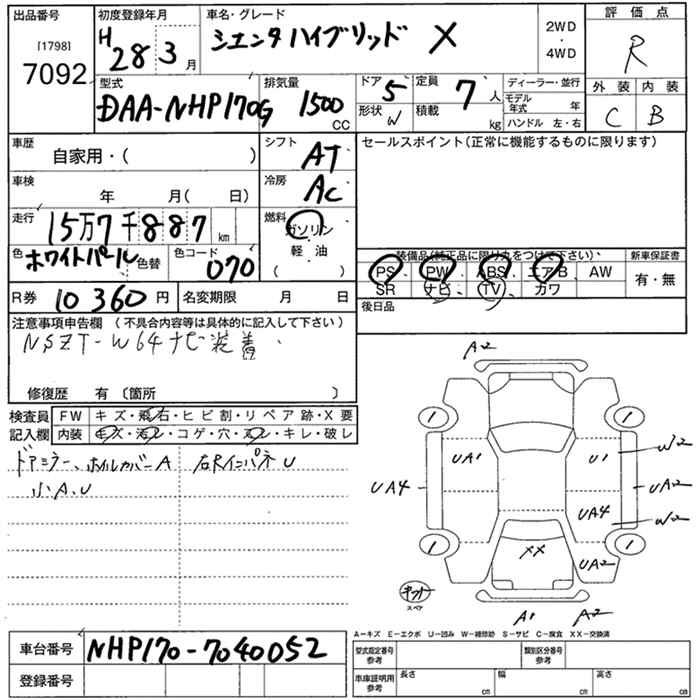 出品番号 初度登録年月 車名・グレード 2WD・4WD 評価点
[1798] 7092 H 28 3月 シエンタハイブリッド X R
型式 排気量 ドア 5 定員 7人 ディーラー・並行 外装 内装
DAA-NHP170G 1500 CC 形状 W 積載 kg モデル年式 年 C B
ハンドル 左・右
車歴 シフト セールスポイント(正常に機能するものに限ります)
自家用・( ) AT
車検 年 月( 日) 冷房 AC
走行 15万7千887 km 燃料 ガソリン
色 ホワイトパール 色替 色コード 070 軽油 ( )
装備品(純正品に限り丸をつけて下さい) 新車保証書
PS PW ABS エアB AW 有・無
SR ナビ TV カワ
R券 10360円 名変期限 月 日 後日品
注意事項申告欄 (不具合内容等は具体的に記入して下さい)
NSZT-W64ナビ装着
修復歴 有 〔箇所 〕
検査員 FW キズ・飛石・ヒビ割・リペア跡・X要
記入欄 内装 キズ・汚レ・コゲ・穴・スレ・キレ・破レ
ドアミラー、ホイルカバーA 右Rインパネ U
小A、U
A2
1 1
UA1 U1 W2
UA4 UA2
UA4 W2
1 1
XX UA2
キット
スペア
A1 A2
A−キズ E−エクボ U−凹み W−補修跡 S−サビ C−腐食 XX−交換済
車台番号 NHP170-7040052
登録番号
型式指定番号 参考 類別区分番号 参考
車庫証明用 参考 長さ cm 幅 cm 高さ cm